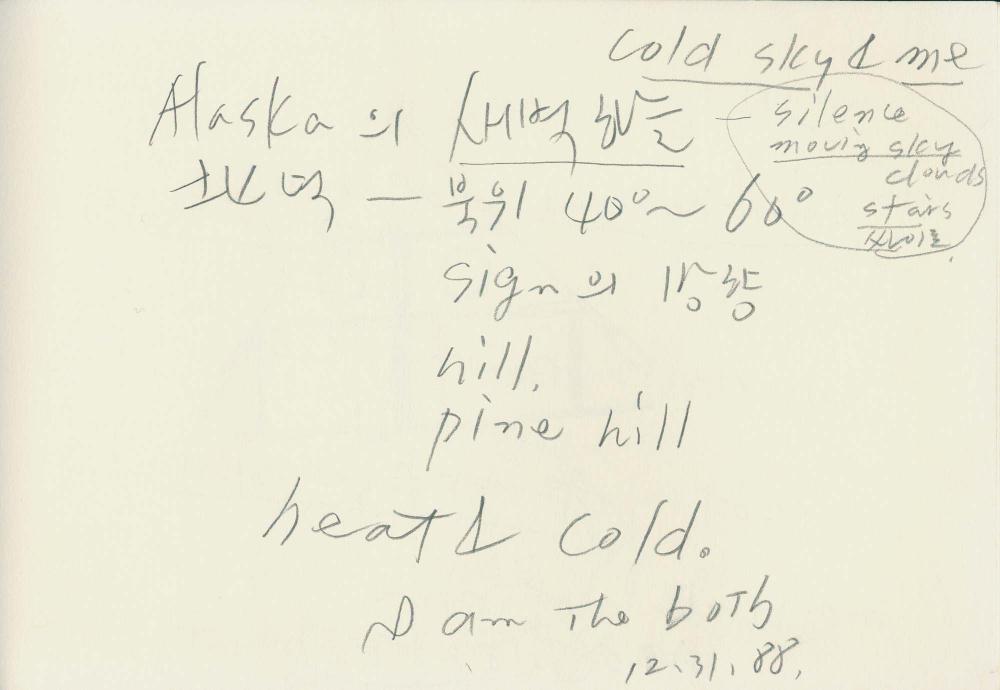 cold sky & me
Alaska의 새벽 하늘 — silence
moving sky
clouds
stars
사이로.
北녘 — 북위 40°~60°
sign의 방향
hill.
pine hill
heat & cold.
I am the both
12.31.88.